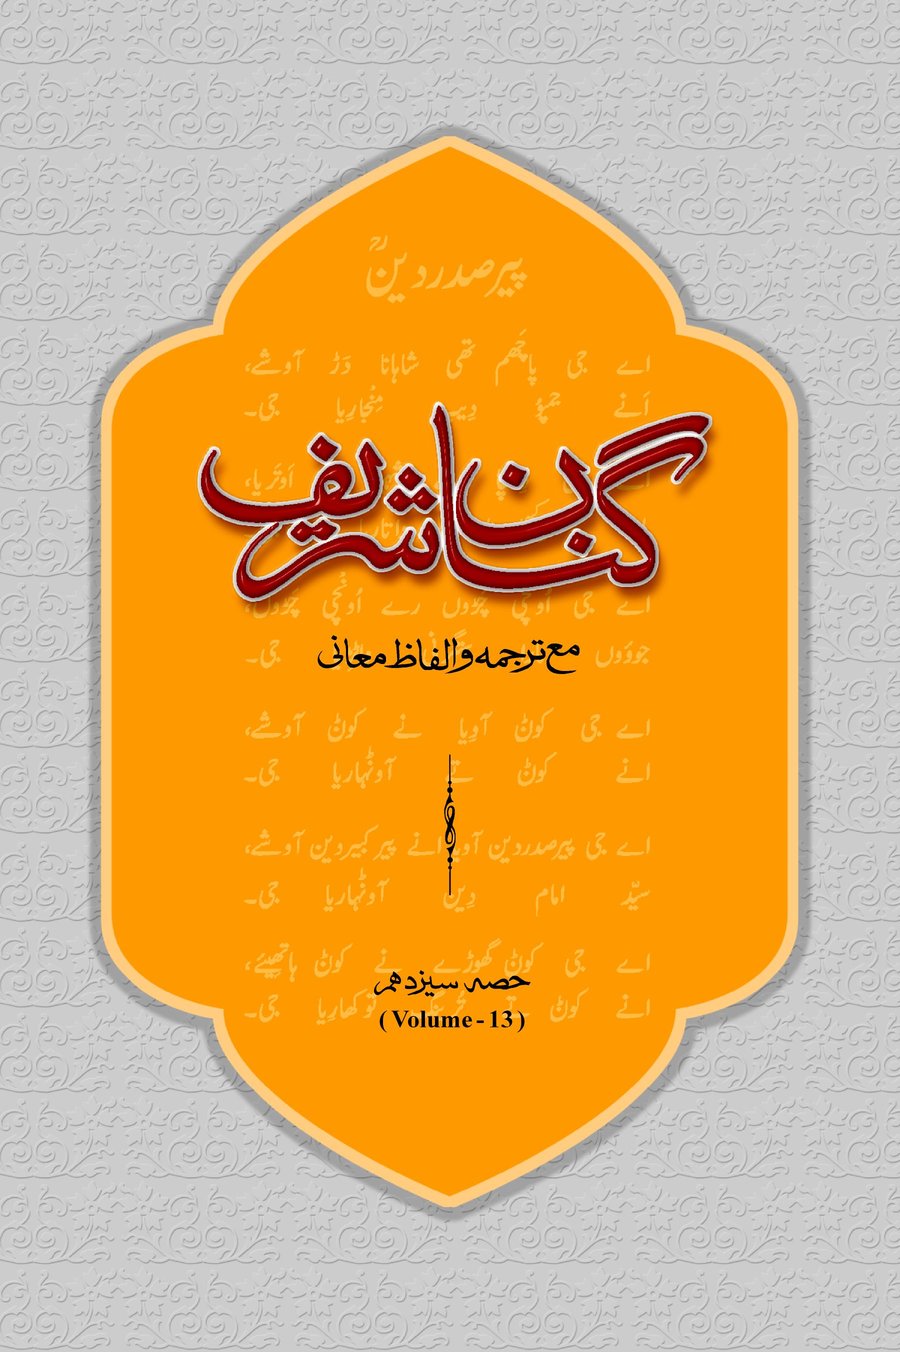 پیر صدر دینؒ
اے جی پاچَھم تھی شاہانا دَڑ آوشے،
اَنے جمپؤ دِیپ مِنجارِیا جی۔
گنان شریف
اُوترِیا،
اے جی اُونچی چڑوں رے اُونچی چڑوں،
جوؤوں جی۔
مع ترجمہ و الفاظ معانی
اے جی کوݨ آوِیا نے کوݨ آوشے،
انے کوݨ تے آوݨہارِیا جی۔
اے جی پیر صدر دین آویا انے پیر کبیر دین آوشے،
سیّد امام دِین آوݨہارِیا جی۔
اے جی کوݨ گھوڑے نے کوݨ ہاتھیئے،
حصہ سیزدھم
انے کوݨ توکھارِیا جی۔
( Volume - 13 )